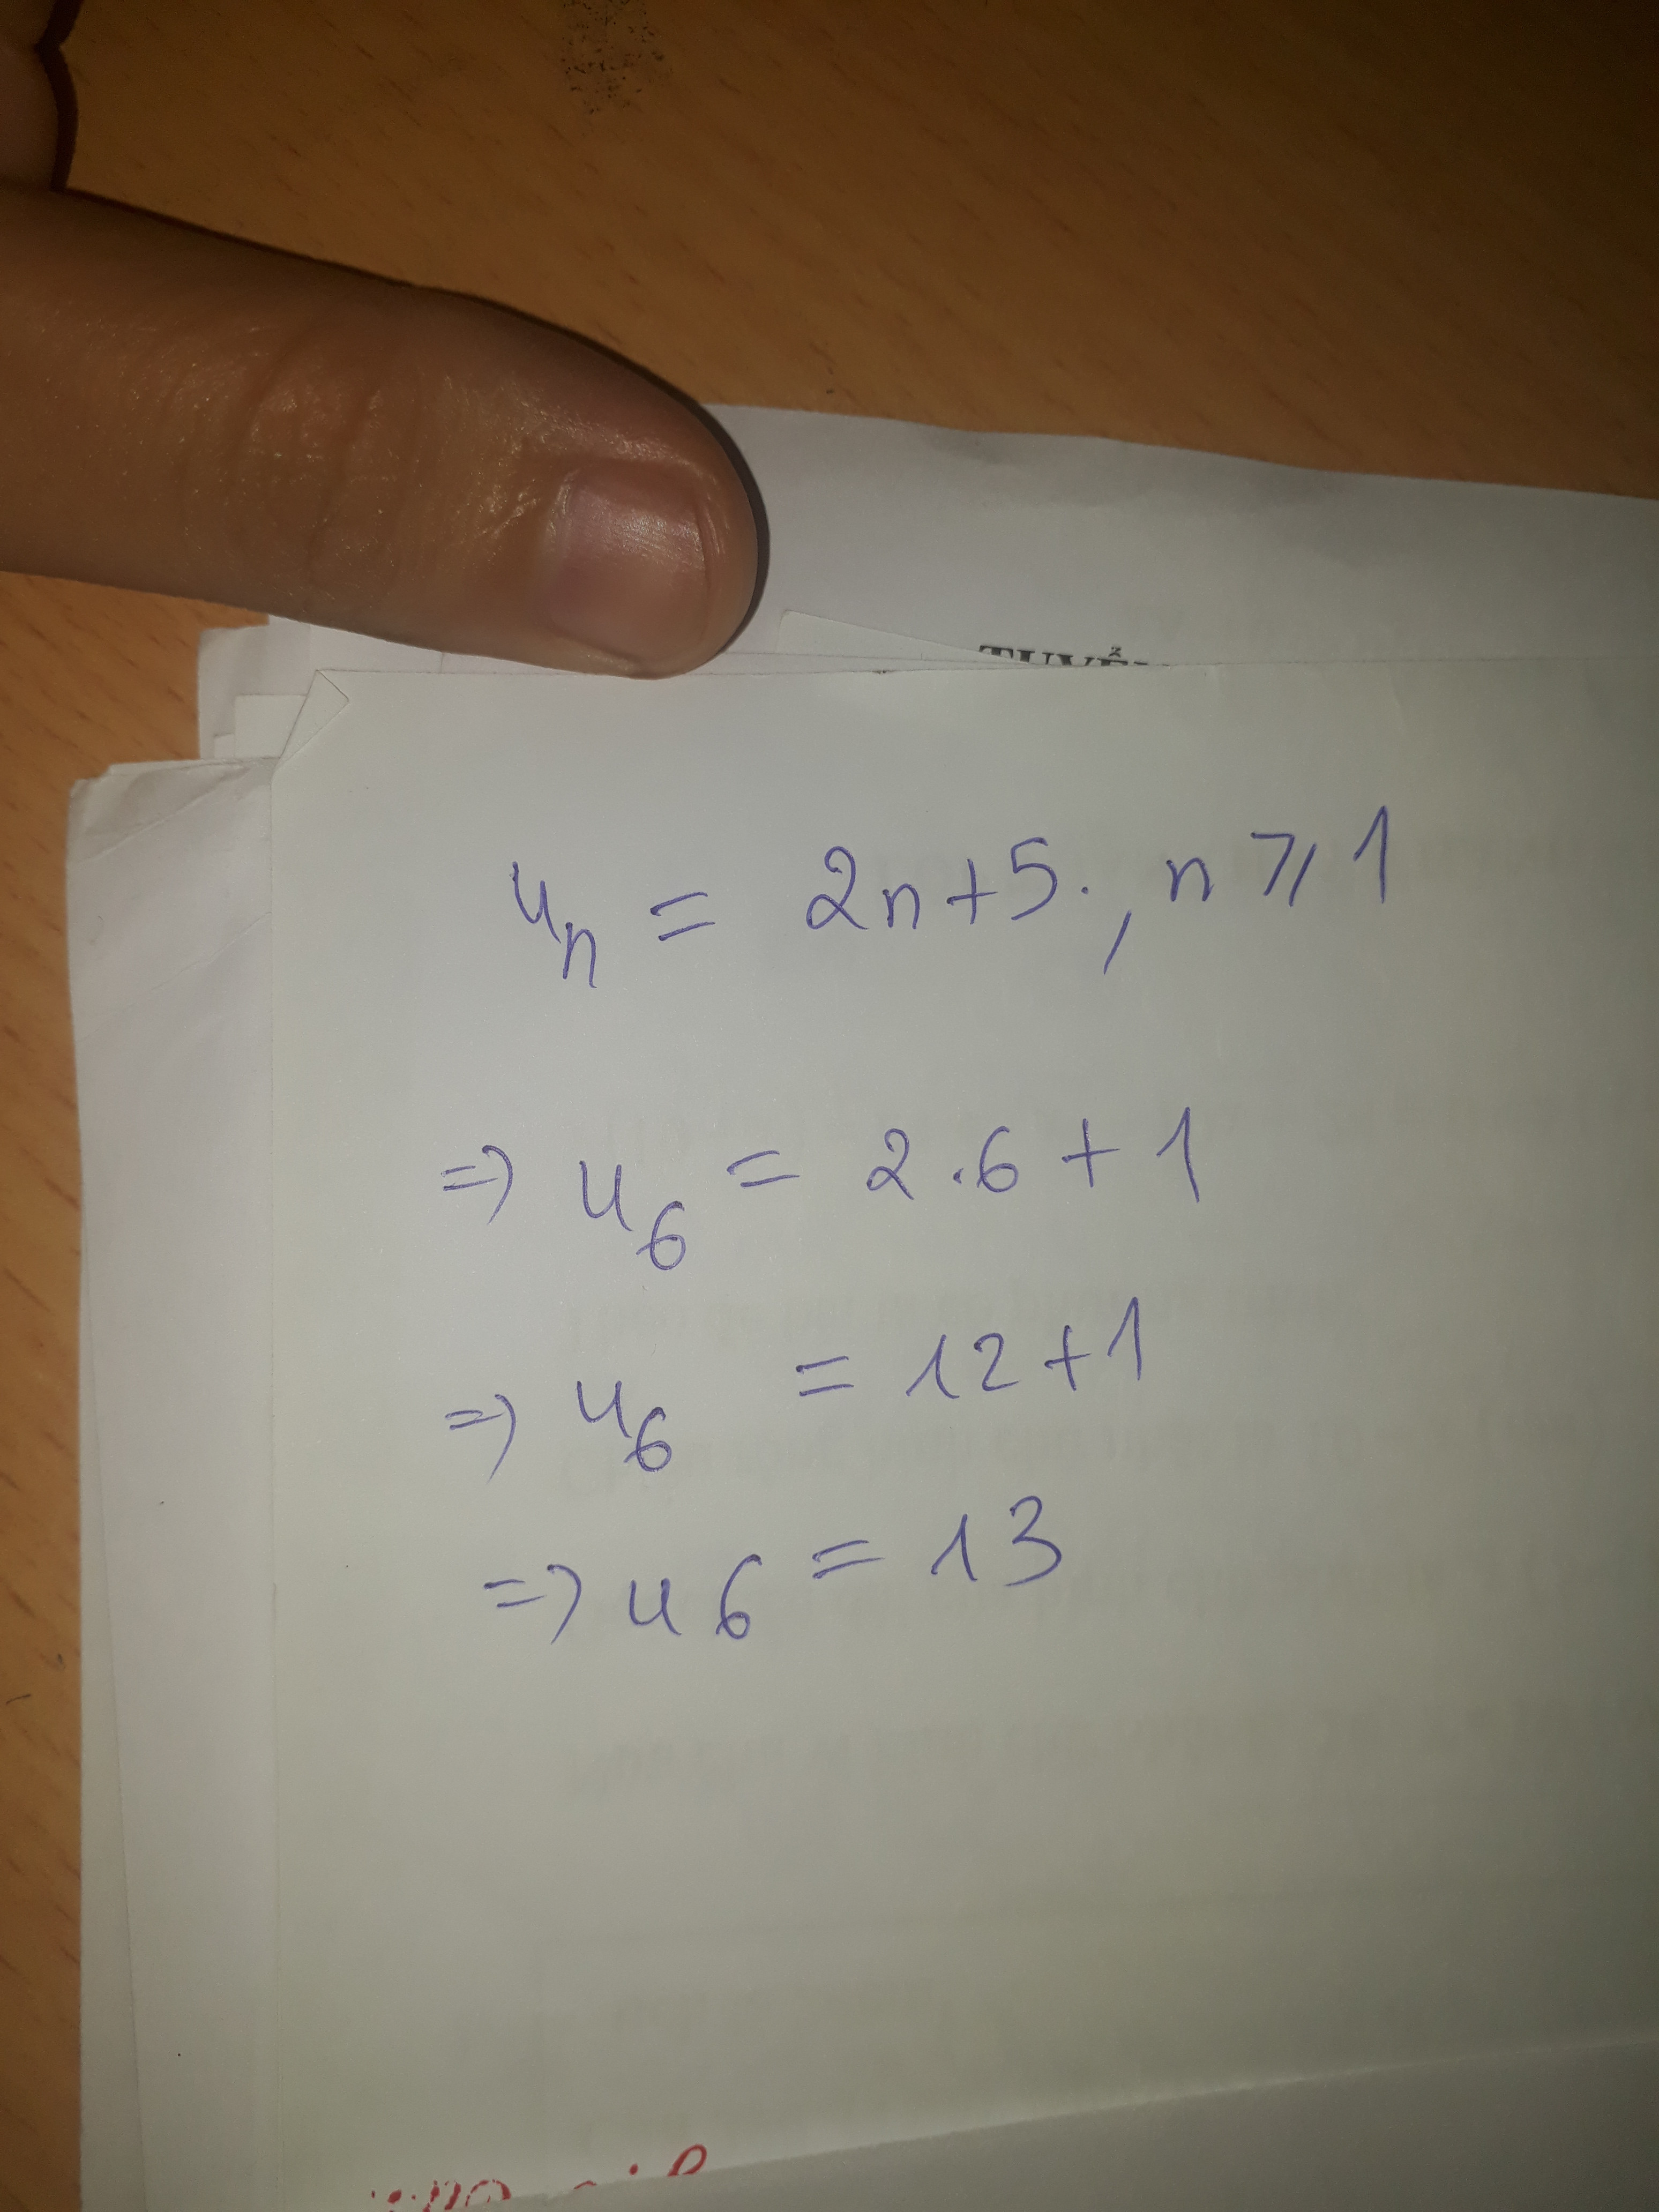 TUYỂ
uₙ = 2n+5., n ⩾ 1
=> u₆ = 2.6 + 1
=> u₆ = 12+1
=> u6 = 13